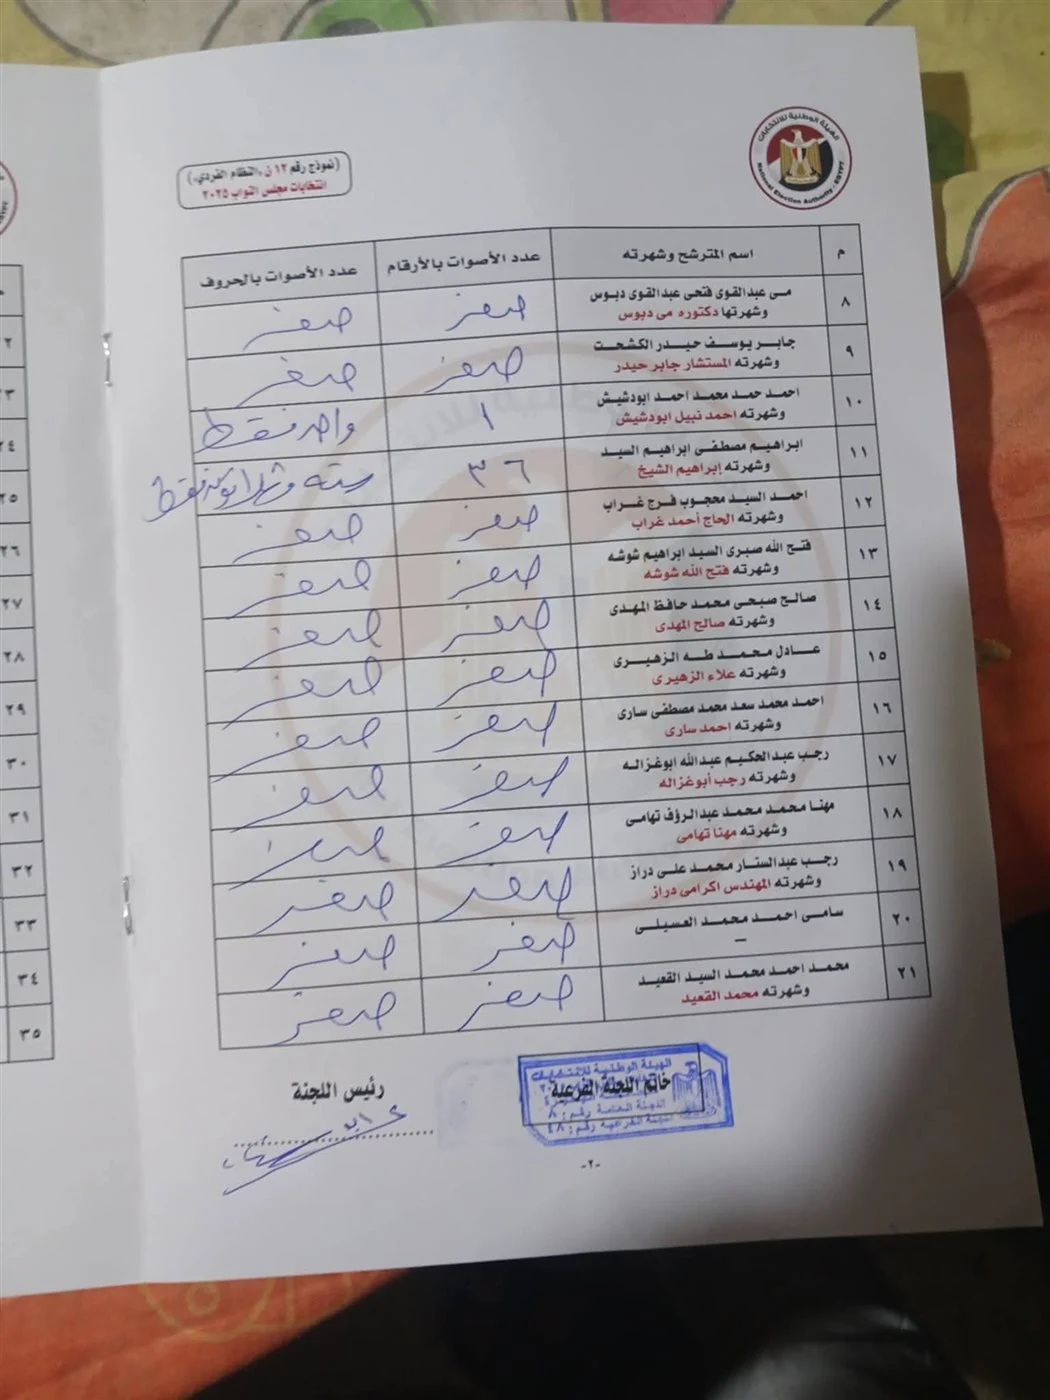 الهيئة الوطنية للانتخابات
National Election Authority - EGYPT
(نموذج رقم ١٢ ن «النظام الفردي»)
انتخابات مجلس النواب ٢٠٢٥
م اسم المترشح وشهرته عدد الأصوات بالأرقام عدد الأصوات بالحروف
٨ مى عبدالقوى فتحى عبدالقوى دبوس صفر صفر
وشهرتها دكتوره مى دبوس
٩ جابر يوسف حيدر الكشحت صفر صفر
وشهرته المستشار جابر حيدر
١٠ احمد حمد محمد احمد ابودشيش ١ واحد فقط
وشهرته احمد نبيل ابودشيش
١١ ابراهيم مصطفى ابراهيم السيد ٣٦ ستة وثلاثون فقط
وشهرته إبراهيم الشيخ
١٢ احمد السيد محجوب فرج غراب صفر صفر
وشهرته الحاج أحمد غراب
١٣ فتح الله صبرى السيد ابراهيم شوشه صفر صفر
وشهرته فتح الله شوشه
١٤ صالح صبحى محمد حافظ المهدى صفر صفر
وشهرته صالح المهدى
١٥ عادل محمد طه الزهيرى صفر صفر
وشهرته علاء الزهيرى
١٦ احمد محمد سعد محمد مصطفى سارى صفر صفر
وشهرته احمد سارى
١٧ رجب عبدالحكيم عبدالله ابوغزاله صفر صفر
وشهرته رجب أبوغزاله
١٨ مهنا محمد محمد عبدالرؤف تهامى صفر صفر
وشهرته مهنا تهامى
١٩ رجب عبدالستار محمد على دراز صفر صفر
وشهرته المهندس اكرامى دراز
٢٠ سامى احمد محمد العسيلى صفر صفر
–
٢١ محمد احمد محمد السيد القعيد صفر صفر
وشهرته محمد القعيد
خاتم اللجنة الفرعية
الهيئة الوطنية للانتخابات
اللجنة العامة رقم: ٨
اللجنة الفرعية رقم: ٤٨
رئيس اللجنة
-٢-
٢٣
٢٤
٢٥
٢٦
٢٧
٢٨
٢٩
٣٠
٣١
٣٢
٣٣
٣٤
٣٥